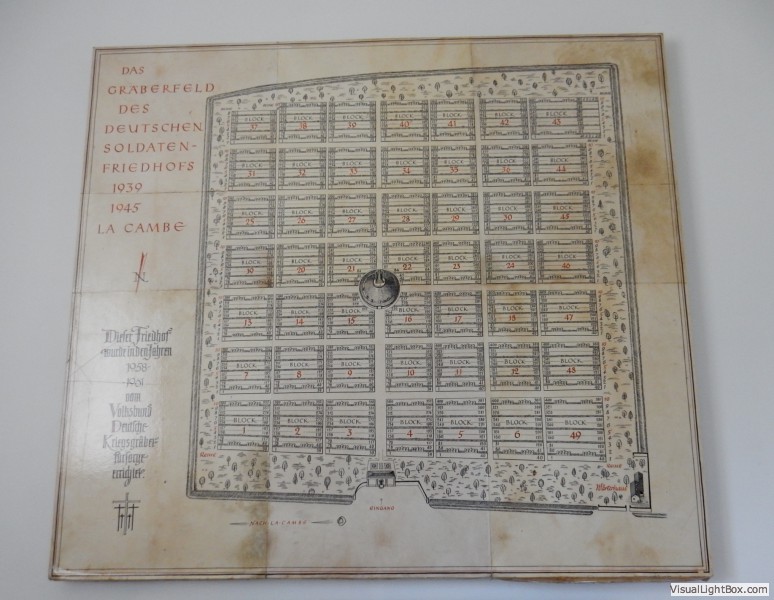 DAS
GRÄBERFELD
DES
DEUTSCHEN
SOLDATEN-
FRIEDHOFS
1939
1945
LA CAMBE
N
Dieser Friedhof
wurde in den Jahren
1958
1961
vom
Volksbund
Deutsche
Kriegsgräber
fürsorge
errichtet.
BLOCK BLOCK BLOCK BLOCK BLOCK BLOCK BLOCK
37 38 39 40 41 42 43
BLOCK BLOCK BLOCK BLOCK BLOCK BLOCK BLOCK
31 32 33 34 35 36 44
BLOCK BLOCK BLOCK BLOCK BLOCK BLOCK BLOCK
25 26 27 28 29 30 45
BLOCK BLOCK BLOCK BLOCK BLOCK BLOCK BLOCK
19 20 21 22 23 24 46
BLOCK BLOCK BLOCK BLOCK BLOCK BLOCK BLOCK
13 14 15 16 17 18 47
BLOCK BLOCK BLOCK BLOCK BLOCK BLOCK BLOCK
7 8 9 10 11 12 48
BLOCK BLOCK BLOCK BLOCK BLOCK BLOCK BLOCK
1 2 3 4 5 6 49
EINGANG
NACH LA CAMBE
VisualLightBox.com